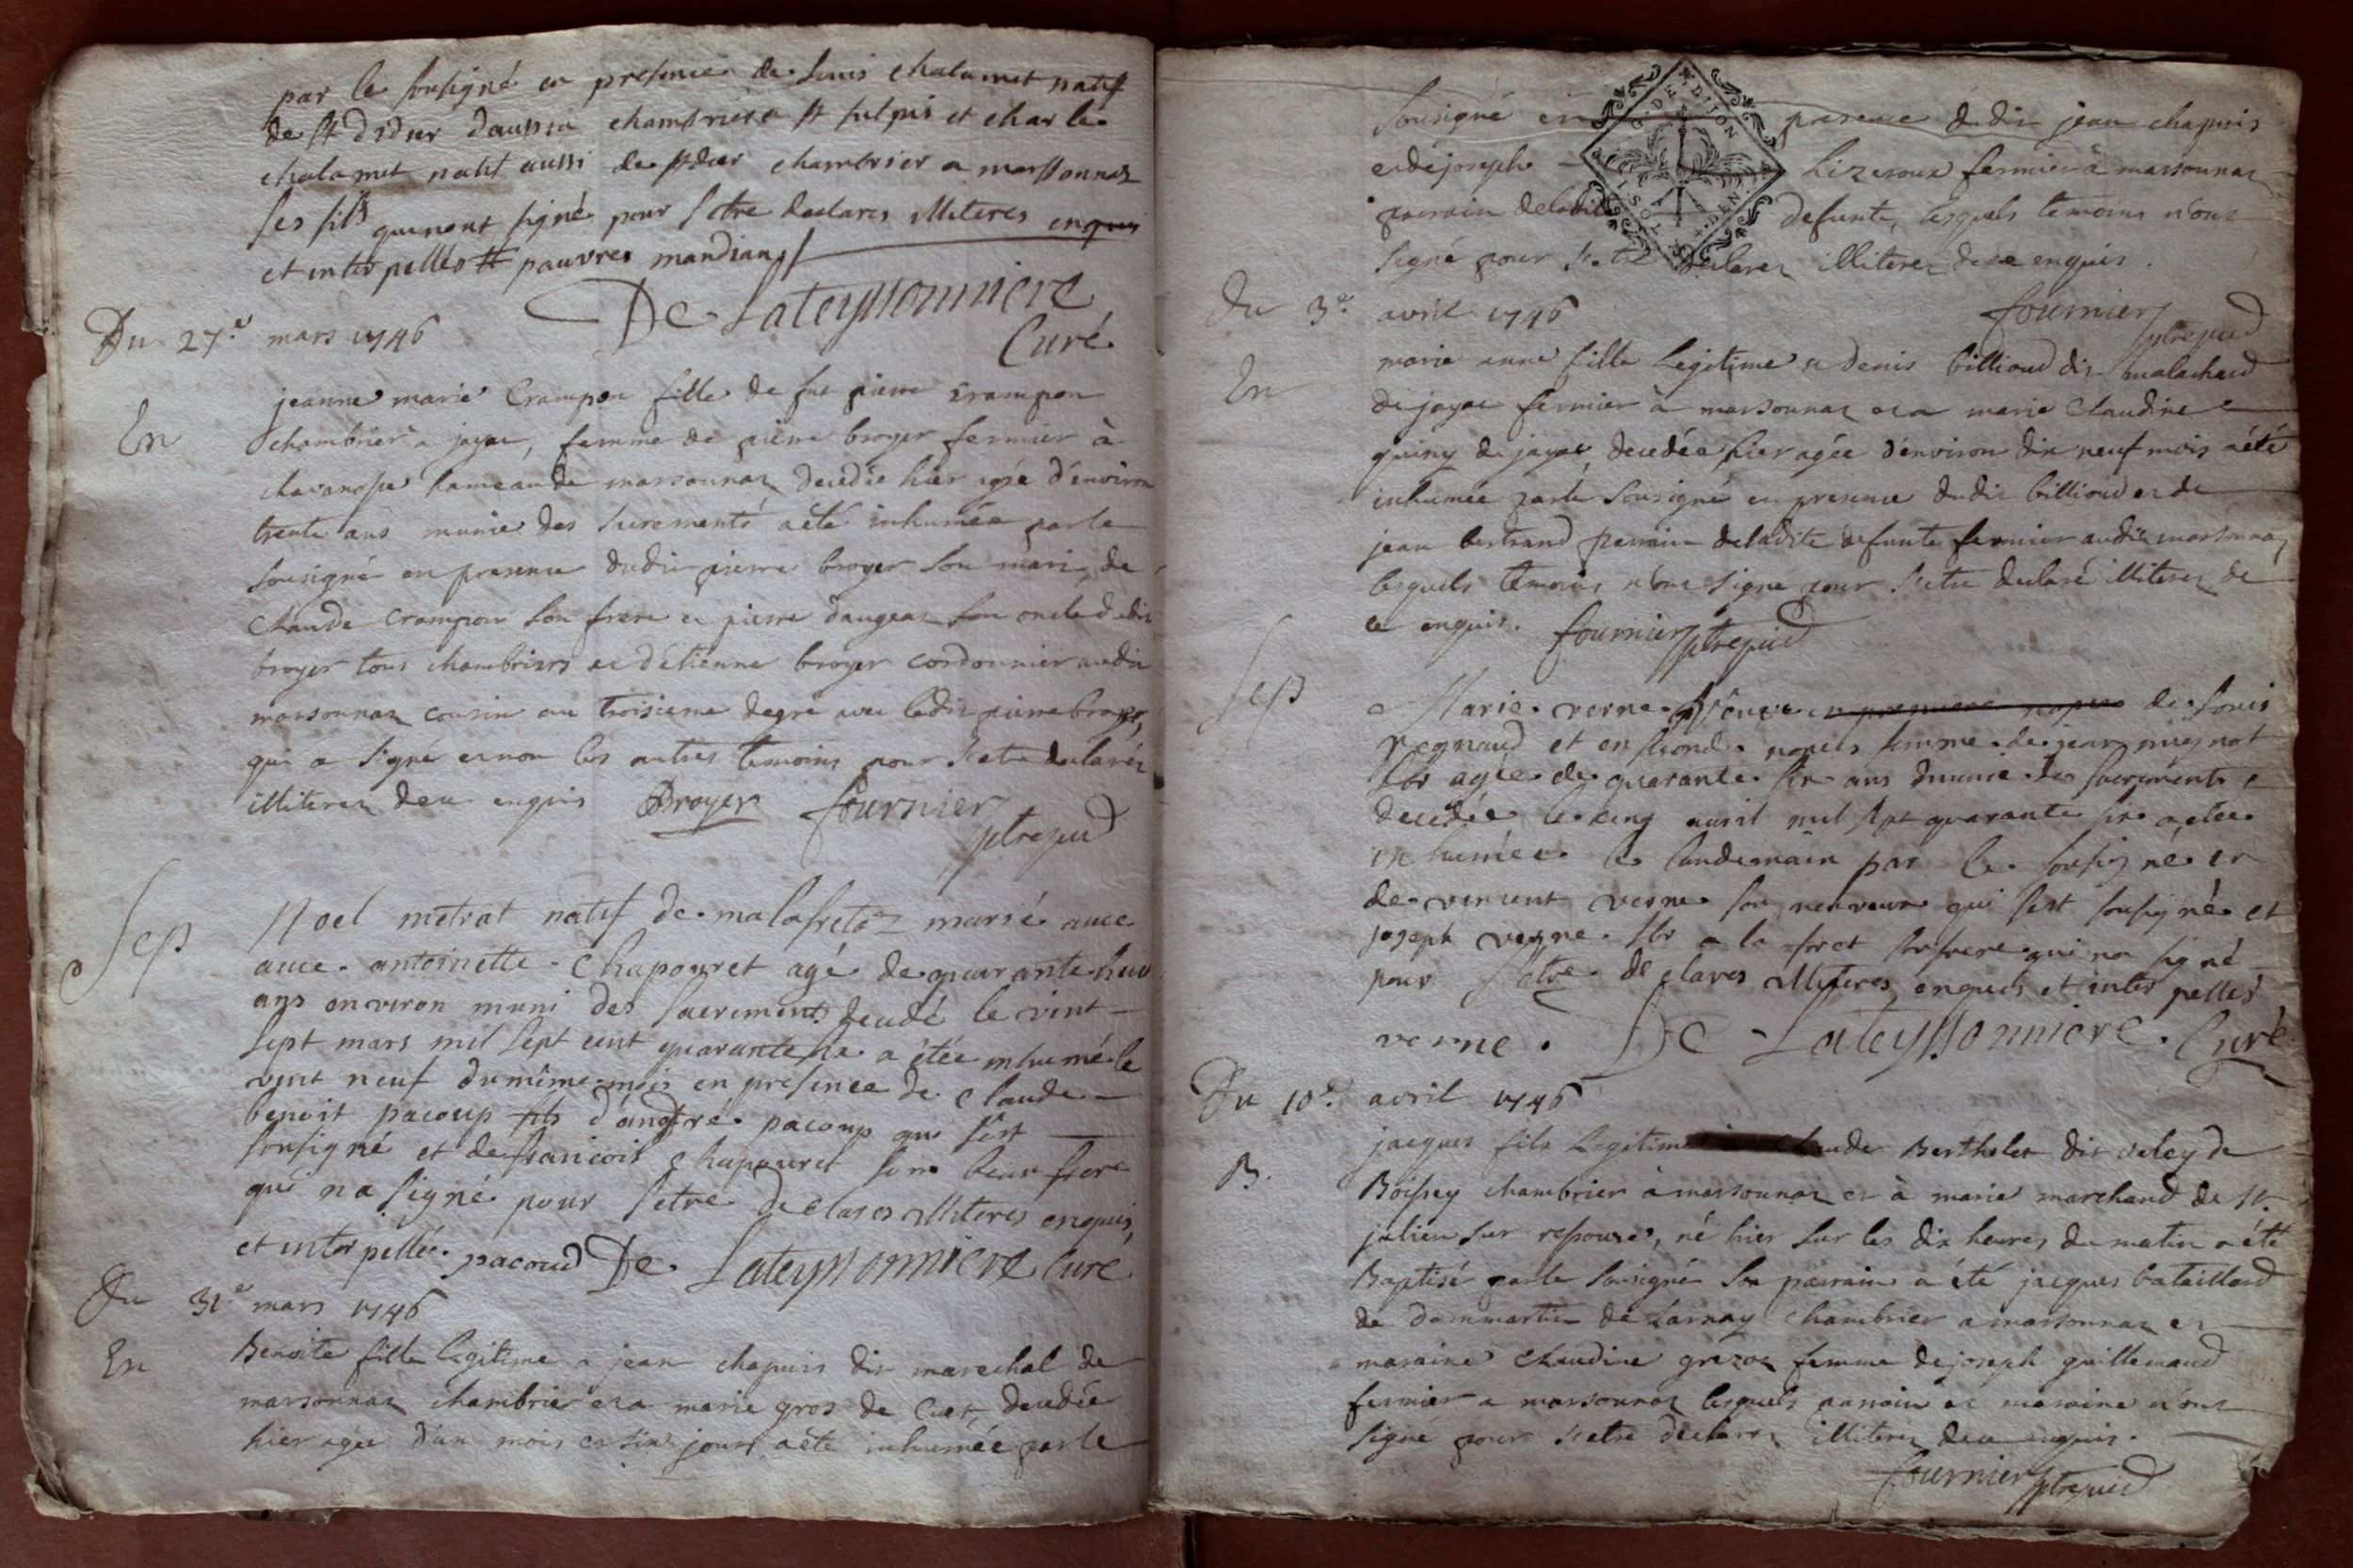 par le sousigné en presence de Louis chalamet natif
de st didier daussia chambrier a st sulpis et charle
chalamet natif aussi de st dier chambrier a marssonnaz
ses fils qui nont signé pour setre declares illiteres enquis
et interpellés pauvres mandians
De Lateyssonniere
Curé
Du 27.e mars 1746
En
jeanne marie Crampon fille de fut pierre crampon
chambrier a jayac, femme de pierre broyer fermier à
hameau de marsonnaz decedée hier agée d'environ
trente ans munie des sacrements a été inhumée par le
sousigné en presence dudit pierre broyer son mari, de
Claude crampon son frere et pierre dangeaz son oncle dudit
broyer tous chambriers et d'etienne broyer cordonnier audit
marsonnaz cousin au troisieme degré avec ledit pierre broyer,
qui a signé et non les autres temoins pour s'etre declarés
illiterez de ce enquis Broyer fournier
ptre
Sep
Noel metrat natif de malafretaz marié avec
avec antoinette Chapouret agé de quarante huit
ans environ muni des sacrements decedé le vint
sept mars mil sept cent quarante six a étée inhumé le
vint neuf du même mois en presence de claude
benoit pacoup fils d'andré pacoup qui s'est
sousigné et de francois chapouret son beau frere
qui na signé pour setre declares illiteres enquis,
et interpellée. pacoud De Lateyssonniere Curé
Du 31.e mars 1746
En
Benoite fille legitime a jean chapuis dit marechal de
marsonnaz chambrier et a marie gros de Cuet, decedée
hier agée d'un mois et six jours a été inhumée par le
sousigné en presence dudit jean chapuis
et de joseph Lizeroux fermier à marsonnaz
parrain de ladite defunte, lesquels temoins n'ont
signé pour s'etre declarez illiterez de ce enquis.
fournier
ptre
Du 3.e avril 1746
En
marie anne fille legitime a denis billioud dit malachard
de jayac fermier à marsonnaz et a marie claudine
quiny de jayac decedée hier agée d'environ dix neuf mois a été
inhumée par le sousigné en presence dudit billioud et de
jean bertrand parrain de ladite defunte fermier audit marsonnaz
lesquels temoins n'ont signé pour s'etre declaré illiterez de
ce enquis. fournier ptre
Sep
Marie verne veuve en premiere nopces de Louis
regnaud et en second nopces femme de jean mignot
lbr agée de quarante six ans munie des sacrements
decedée le cinq avril mil sept quarante six a étée
inhumée le landemain par le sousigné et
de vincent verne son neuveux qui s'est sousigné et
joseph verne lbr a la foret son frere qui na signé
pour setre declares illiteres enquis et interpelles
verne. De Lateyssonniere. Curé
Du 10.e avril 1746
B.
jacques fils legitime claude Berthelet dit veley de
Boissey chambrier à marsonnaz et à marie marchand de st.
julien sur ressouze, né hier sur les dix heures du matin a été
Baptisé par le sousigné son parrain a été jacques bataillard
de dommartin de Larnay chambrier a marsonnaz et
maraine claudine grezoz femme de joseph guillemaud
fermier a marsonnaz lesquels parrain et maraine n'ont
signé pour s'etre declarez illiterez de ce enquis.
fournier ptre